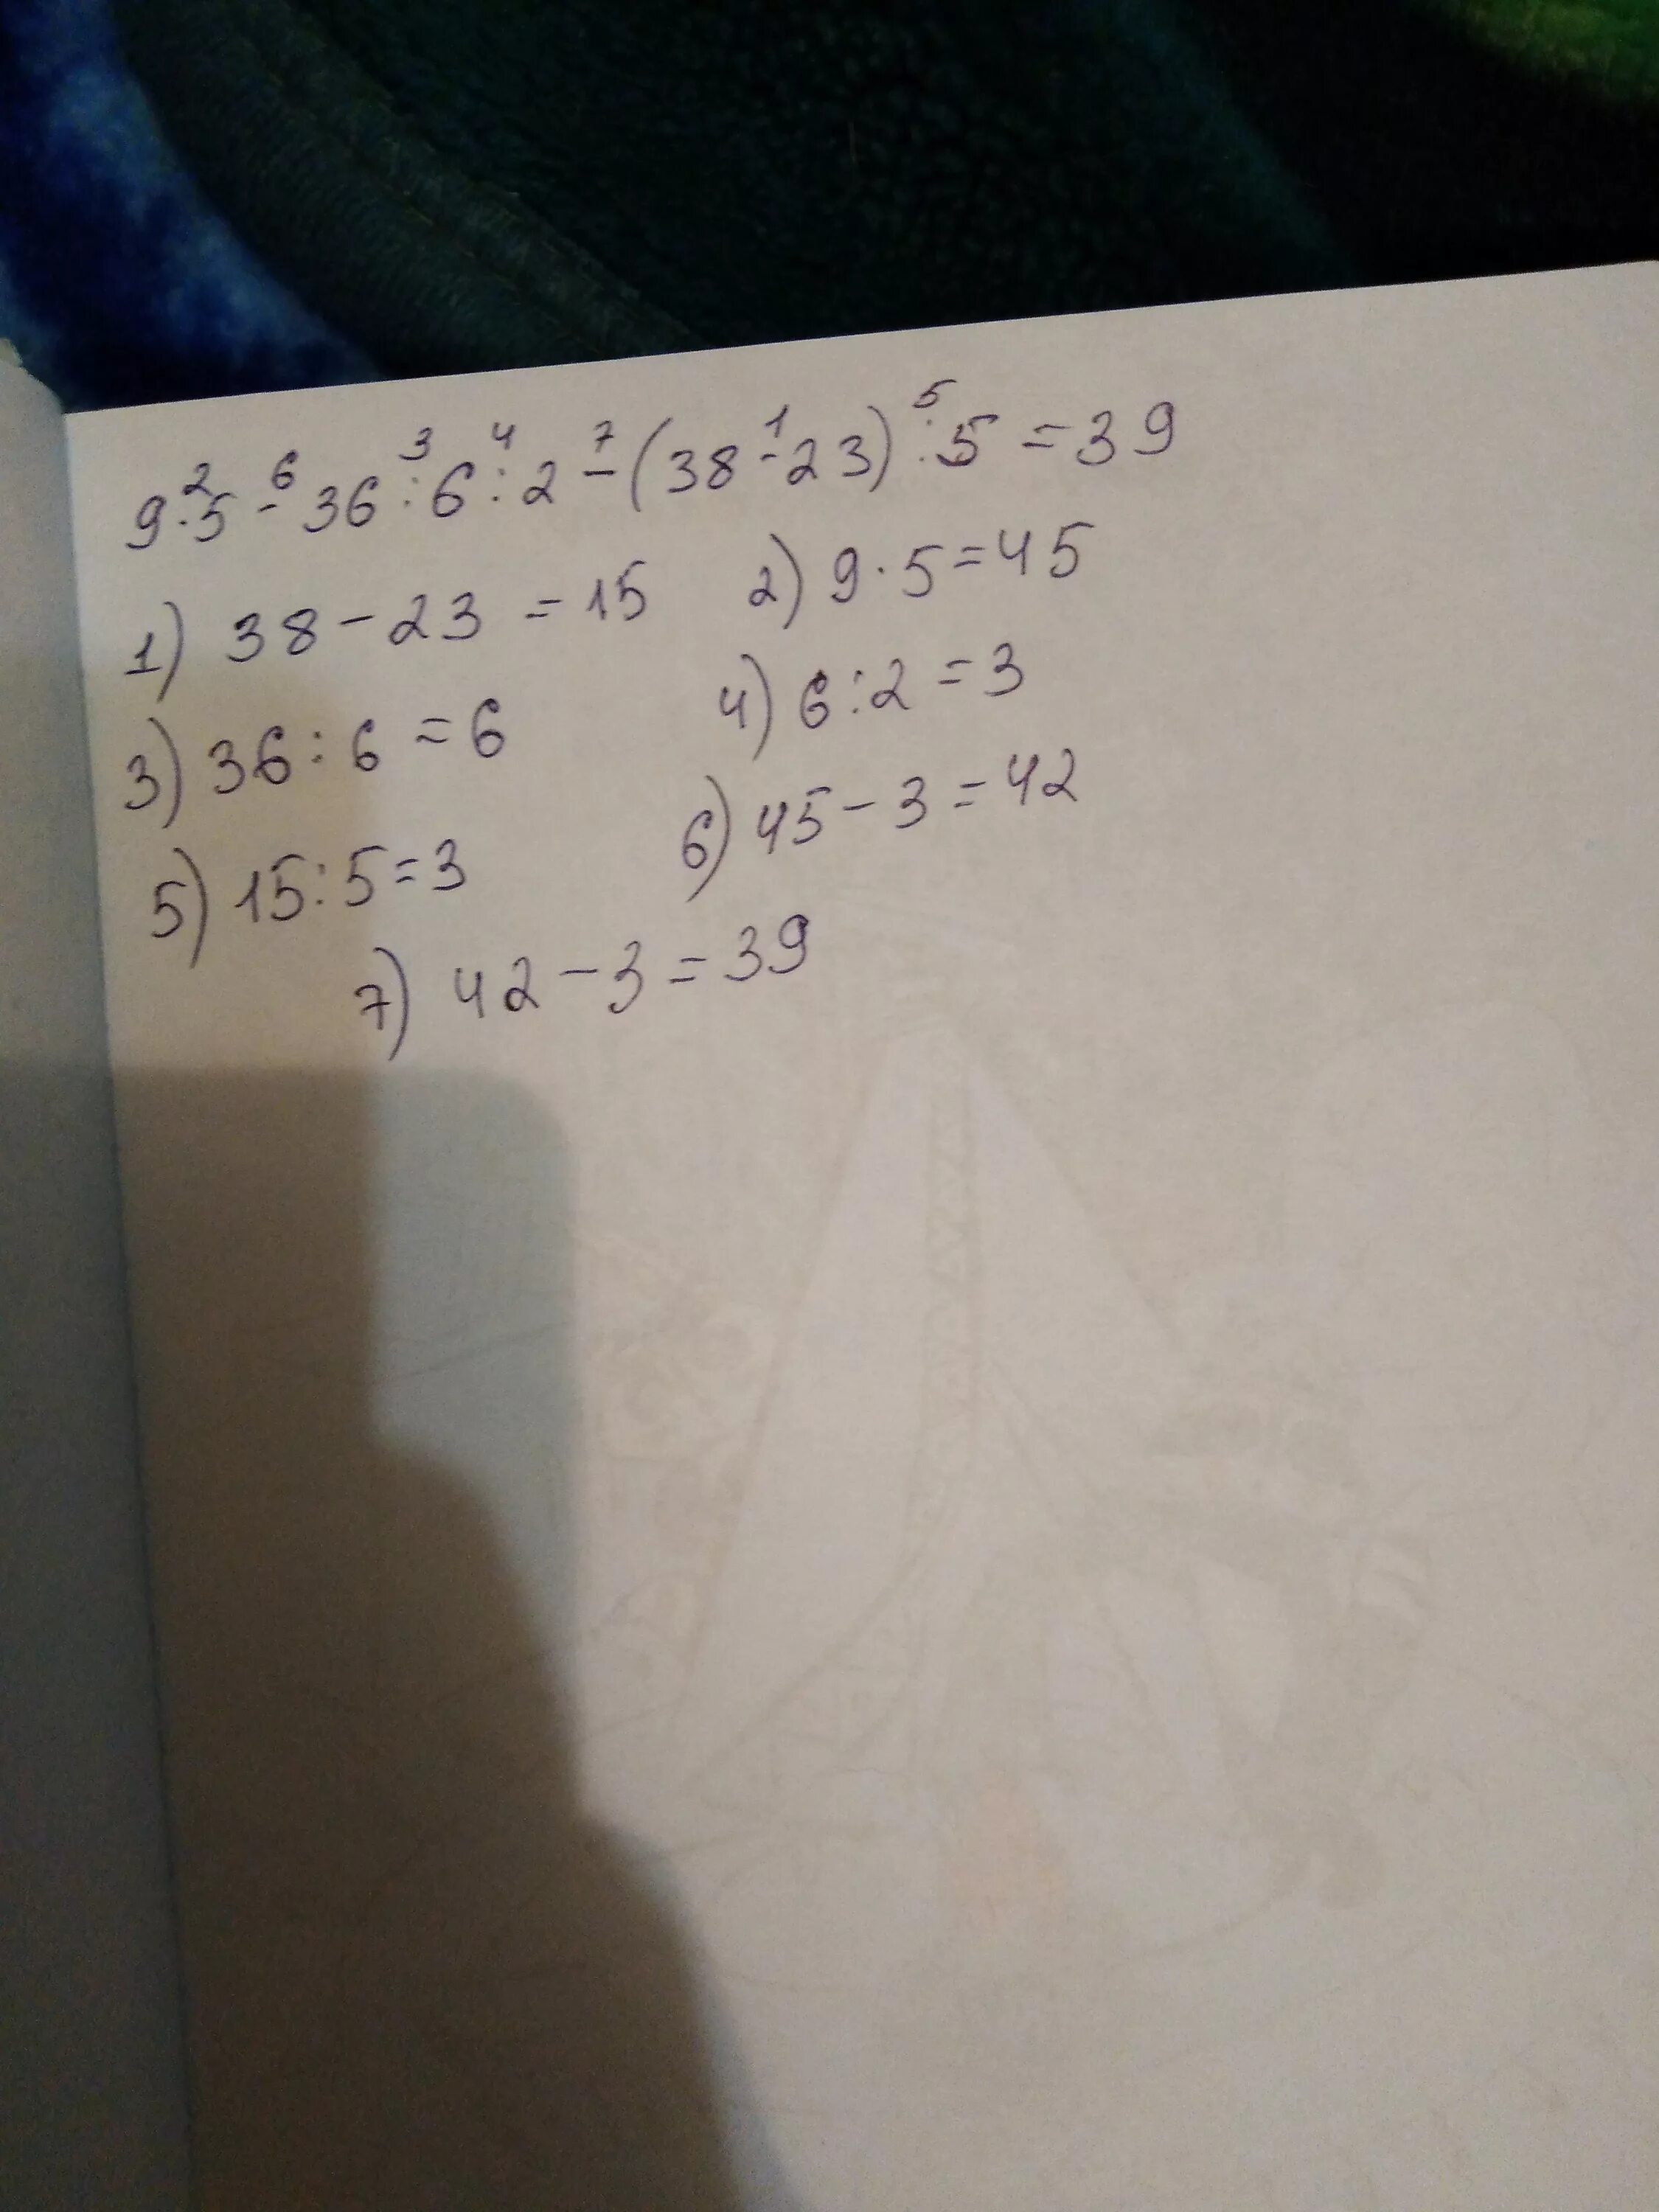 2 6 3 4 7 1 5
9·5 - 36 : 6 : 2 - (38 - 23) : 5 = 39
1) 38 - 23 = 15 2) 9·5 = 45
3) 36 : 6 = 6 4) 6 : 2 = 3
5) 15 : 5 = 3 6) 45 - 3 = 42
7) 42 - 3 = 39